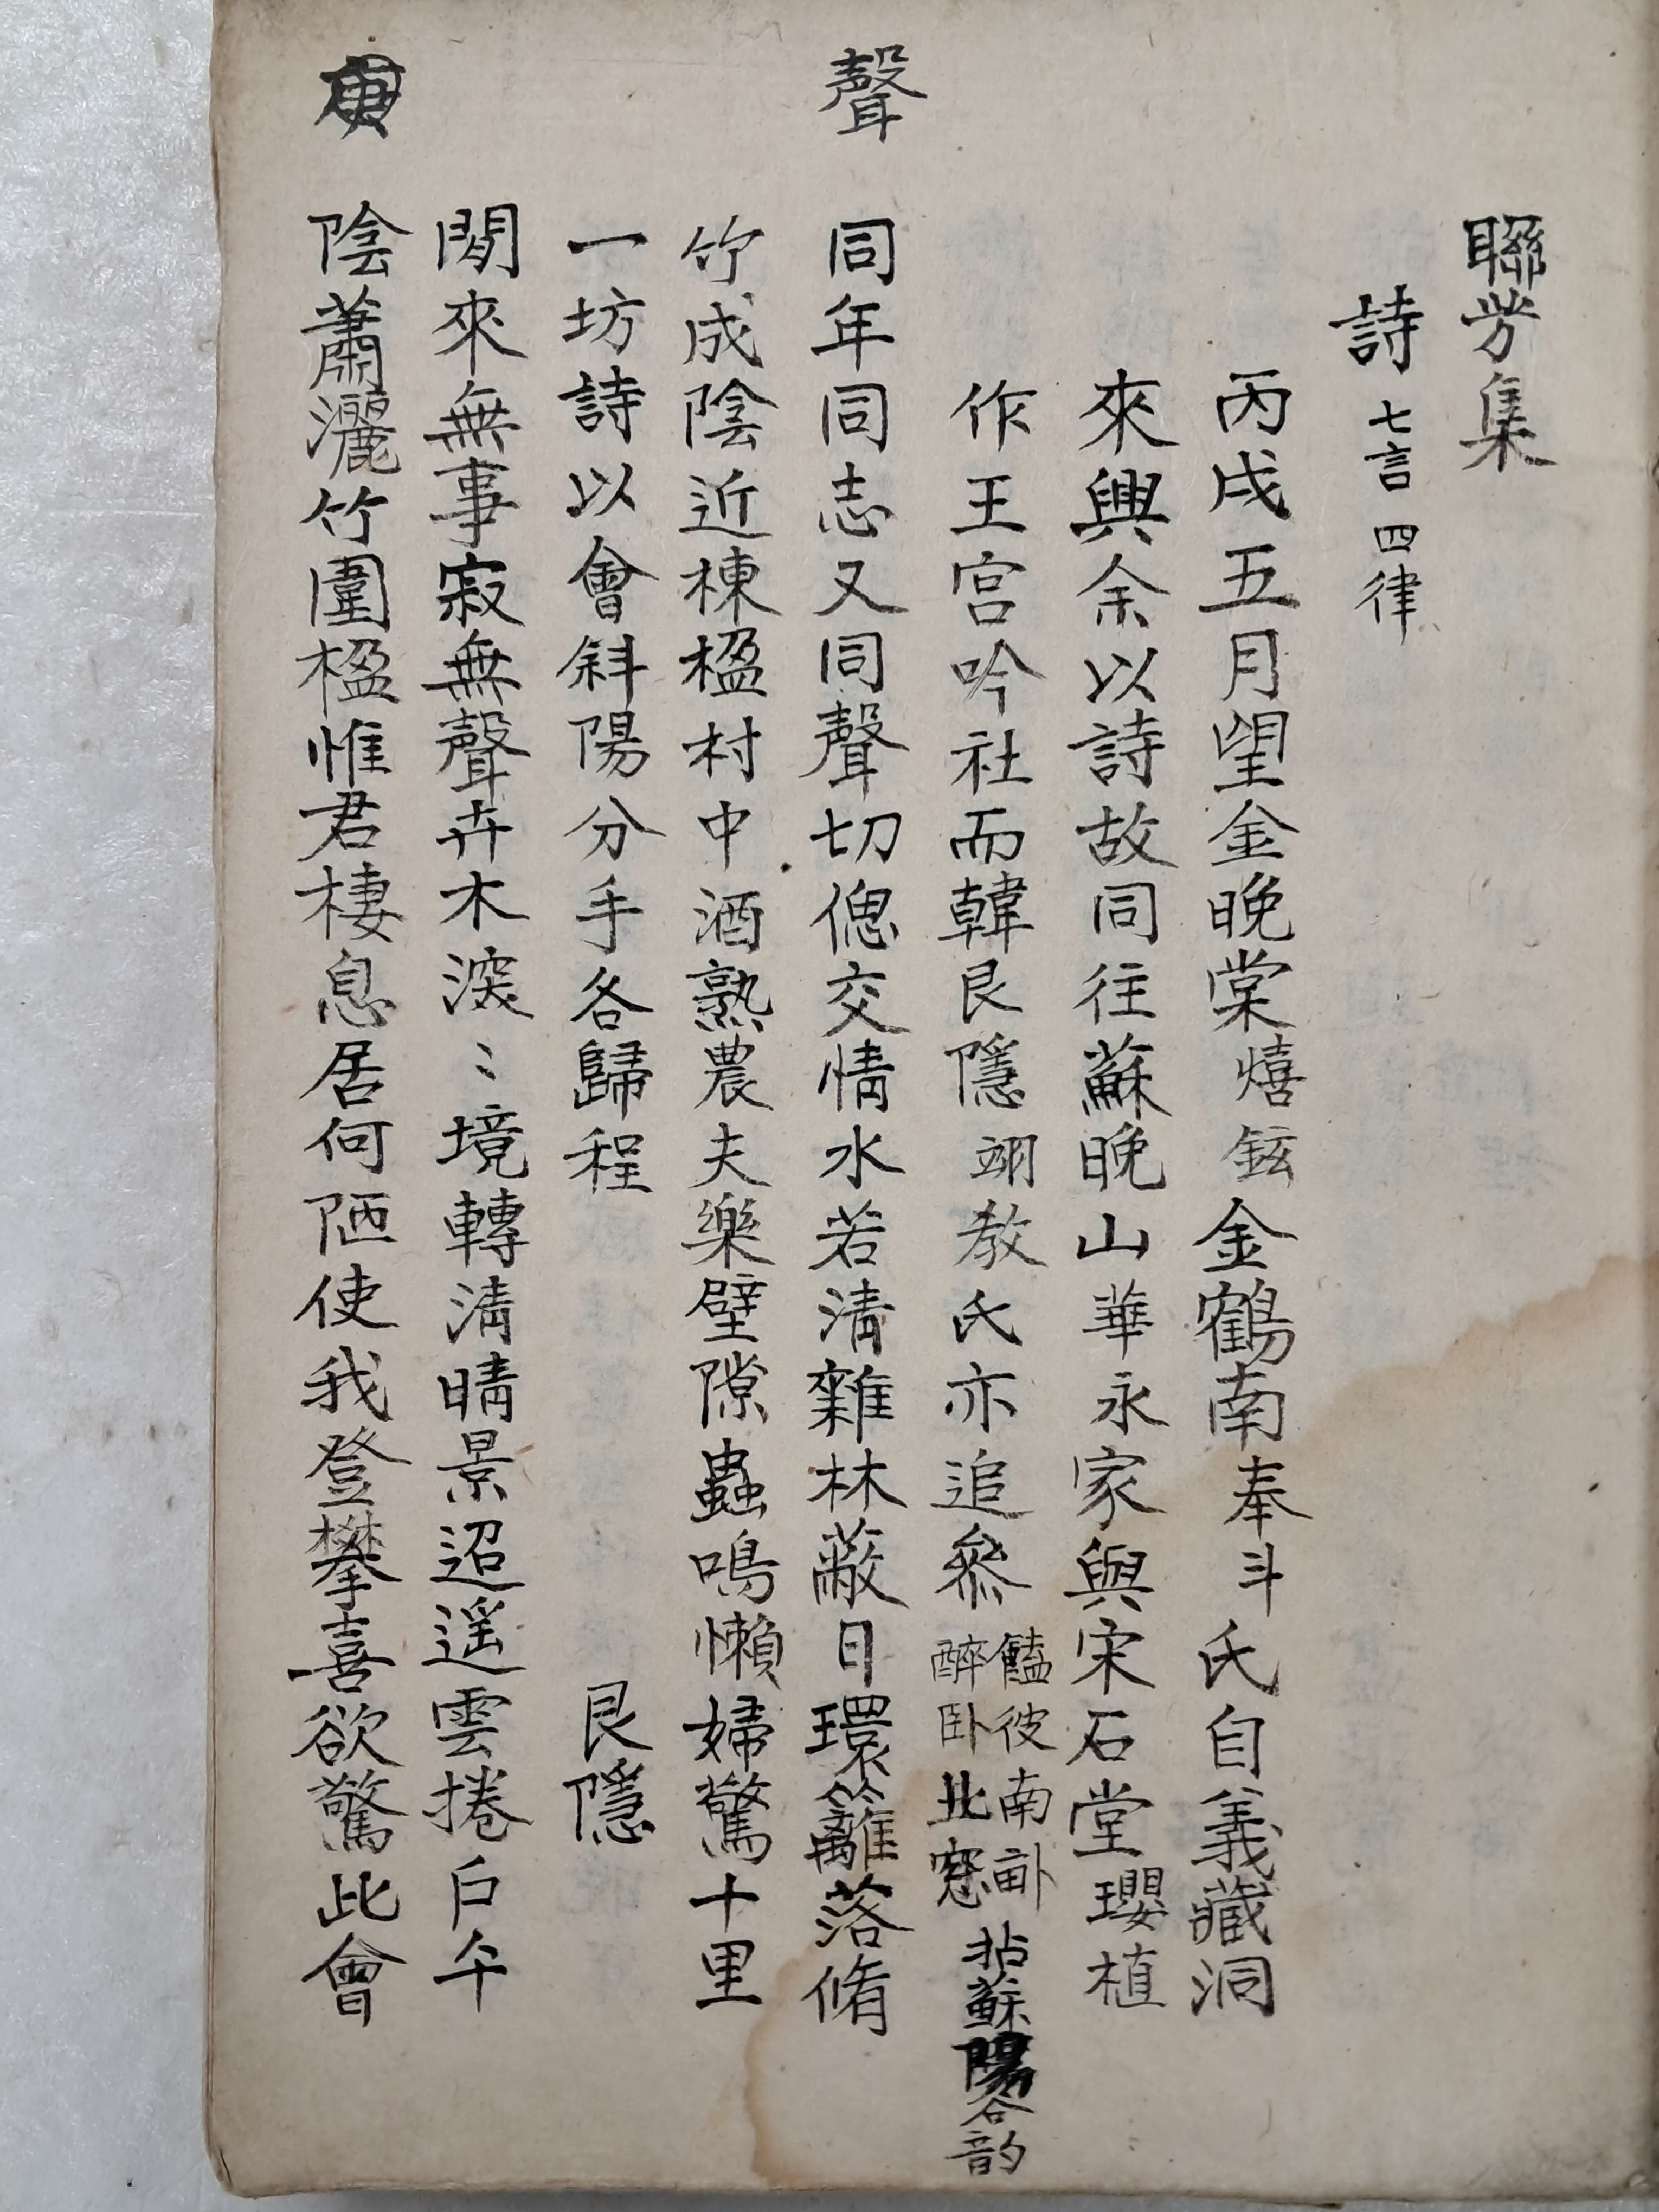 聯芳集
詩 七言 四律
丙戌五月望金晩棠熺鉉金鶴南奉斗氏自義藏洞
來與余以詩故同往蘇晩山華永家與宋石堂瓔植
作王宮吟社而韓艮隱翊教氏亦追參 饁彼南畝 醉臥北窓 拈蘇韵
聲
同年同志又同聲切偲交情水若清雜林蔽日環籬落脩
竹成陰近棟楹村中酒熟農夫樂壁隙蟲鳴懶婦驚十里
一坊詩以會斜陽分手各歸程 艮隱
閒來無事寂無聲卉木深〻境轉清晴景迢遥雲捲戶午
陰蕭灑竹圍楹惟君棲息居何陋使我登攀喜欲驚此會